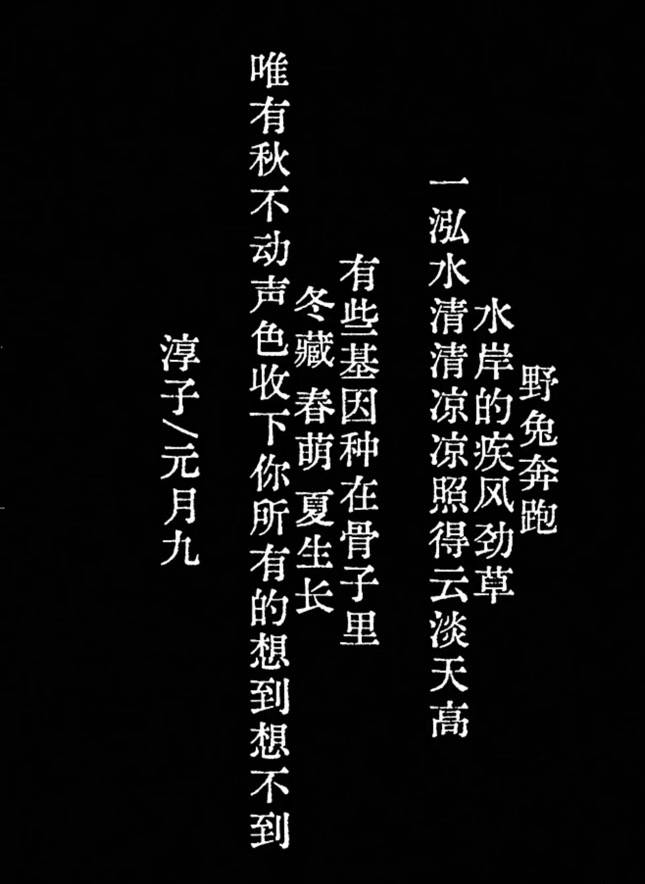 野兔奔跑
水岸的疾风劲草
一泓水清清凉凉照得云淡天高
有些基因种在骨子里
冬藏 春萌 夏生长
唯有秋不动声色收下你所有的想到想不到
淳子/元月九